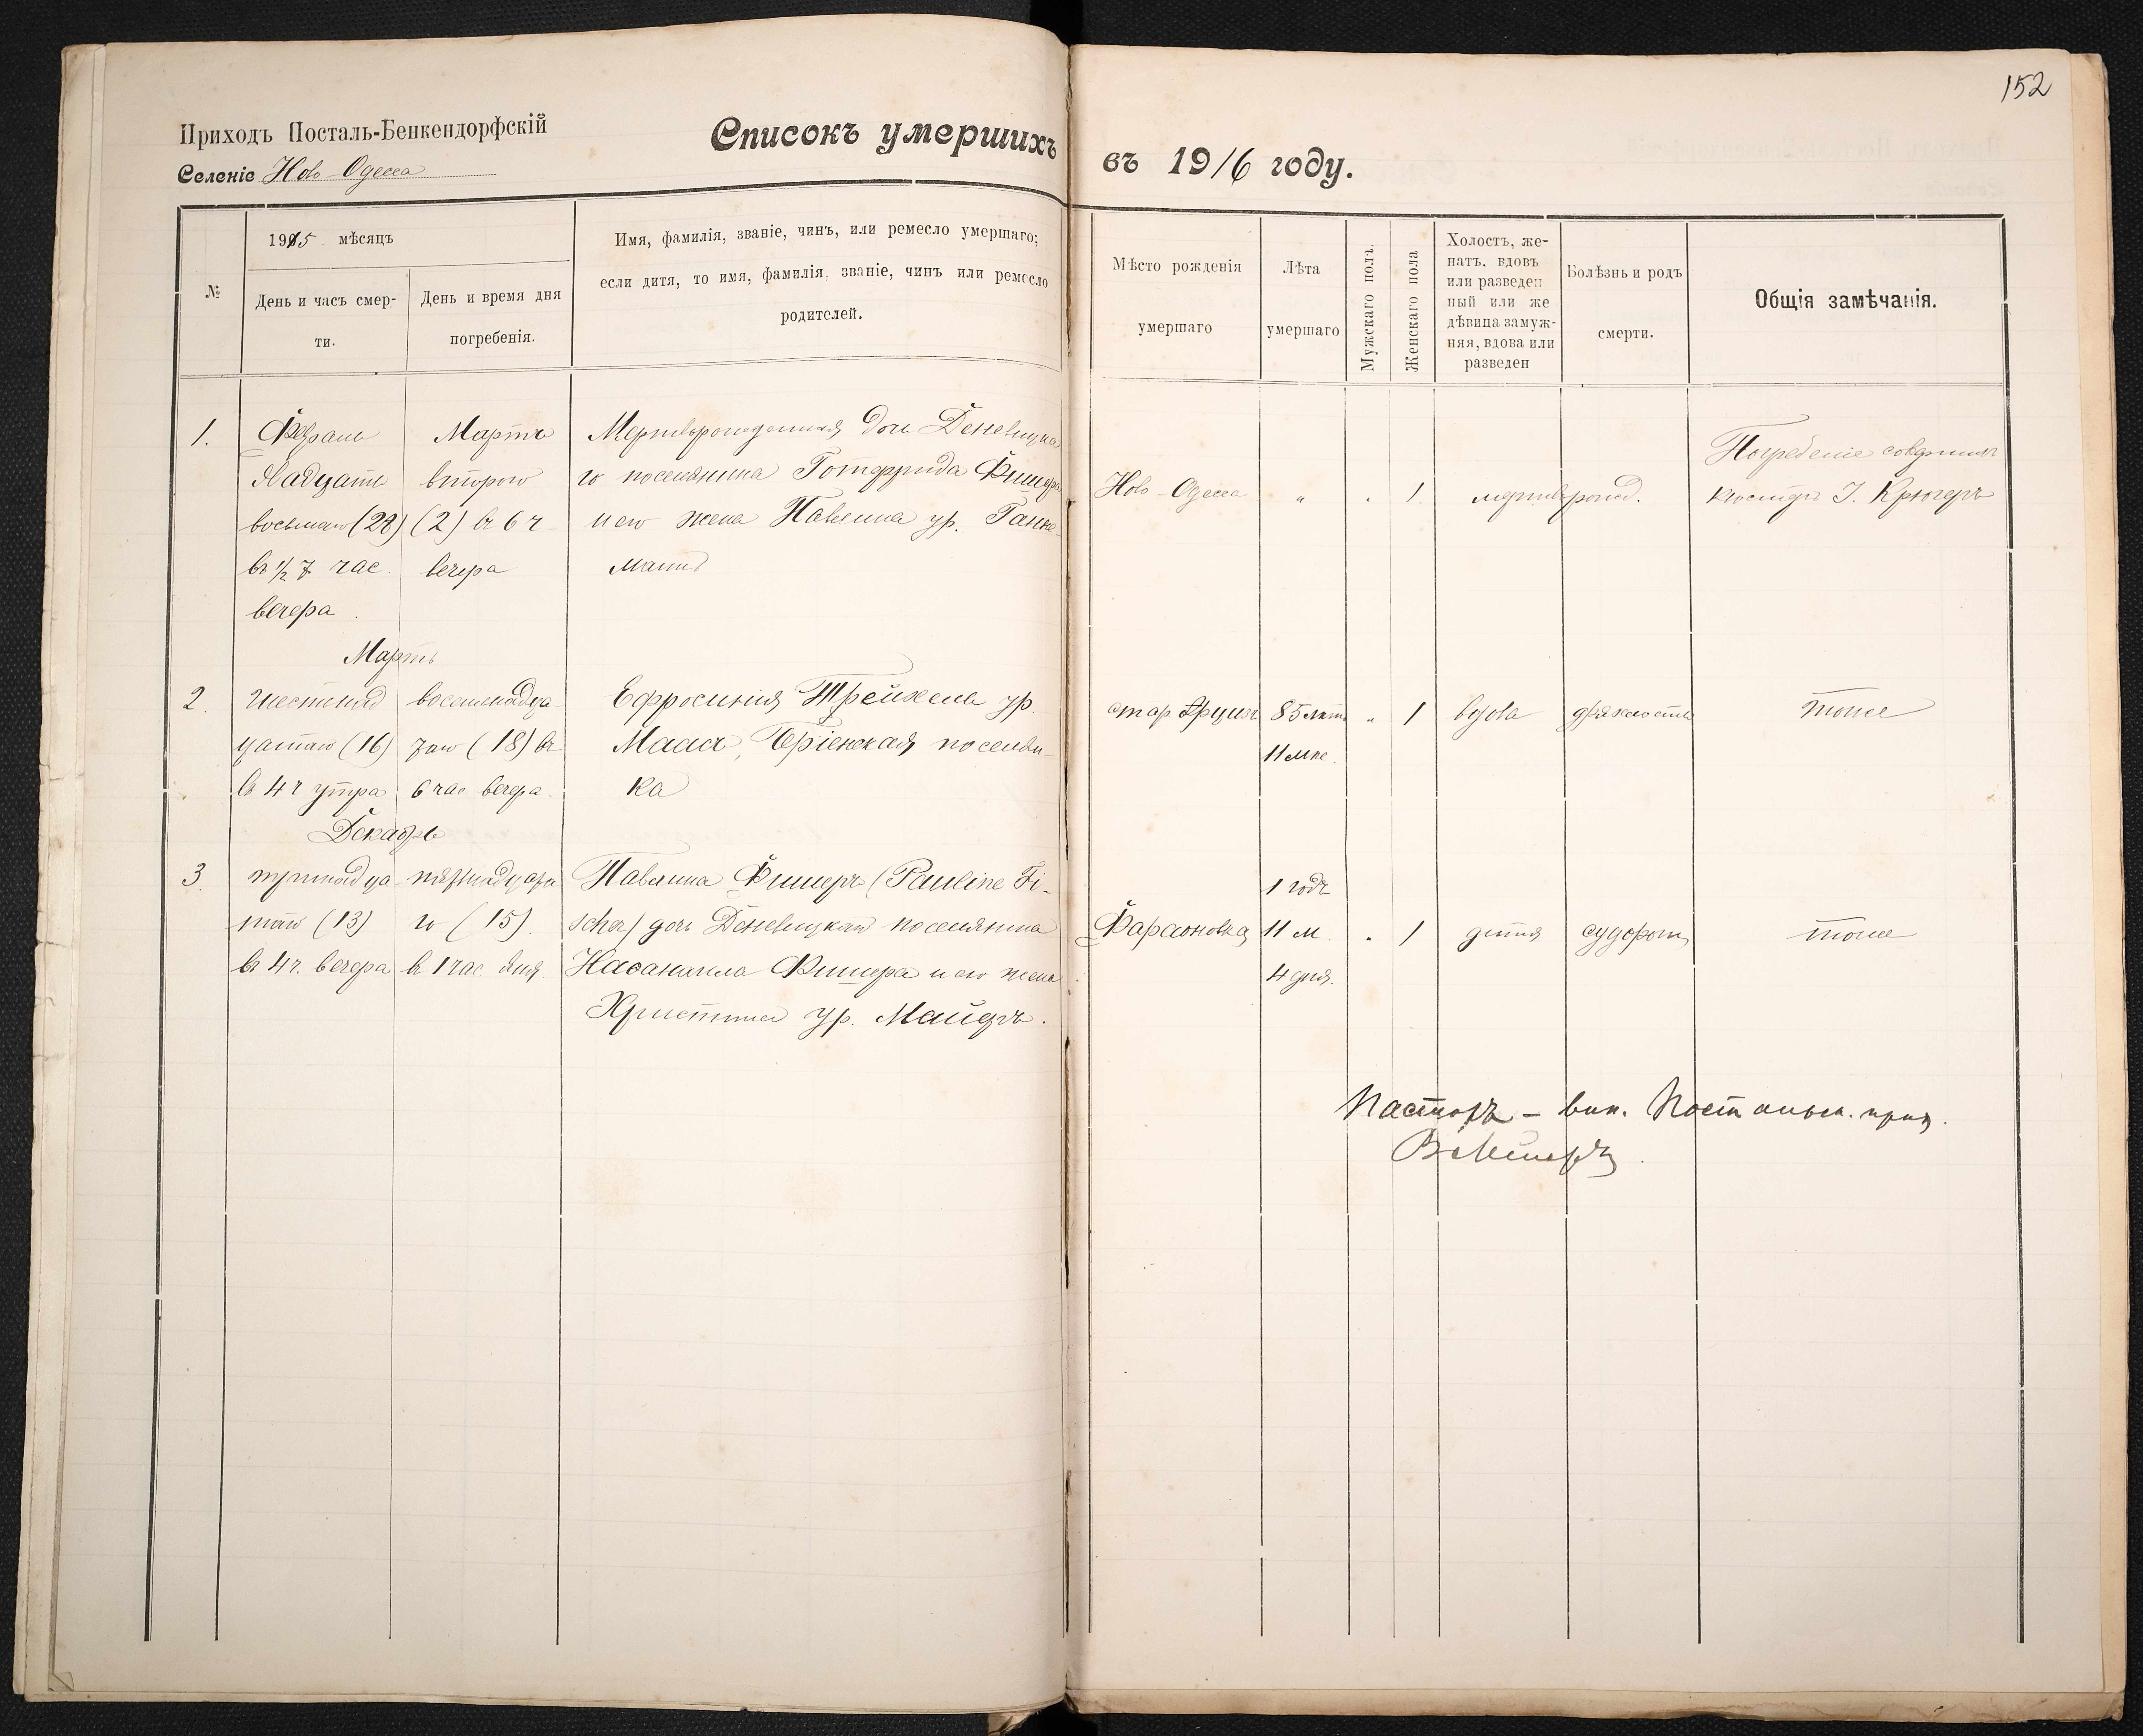 152
Приходъ Посталь-Бенкендорфскій
Селеніе Ново-Одесса
Списокъ умершихъ въ 1916 году.
№
1915 мѣсяцъ
День и часъ смер-
ти.
День и время дня
погребенія.
Имя, фамилія, званіе, чинъ, или ремесло умершаго;
если дитя, то имя, фамилія, званіе, чинъ или ремесло
родителей.
Мѣсто рожденія
умершаго
Лѣта
умершаго
Мужскаго пола.
Женскаго пола
Холостъ, же-
натъ, вдовъ
или разведен
ный или же
дѣвица замуж-
няя, вдова или
разведен
Болѣзнь и родъ
смерти.
Общія замѣчанія.
1.
Февраль
двадцать
восьмаго (28)
въ 1/2 7 час.
вечера
Мартъ
второго
(2) въ 6 ч
вечера
Мертворожденная дочь Деневицка
го поселянина Готфрида Фишера
и его жена Павлина ур. Ганне-
манъ
Ново-Одесса
"
.
1
мертворожд.
Погребеніе совершилъ
кюстеръ І. Крюгеръ
Мартъ
2.
шестнад
цатаго (16)
въ 4 ч утра
восемнадца
таго (18) въ
6 час вечера.
Ефросинія Трейхель ур.
Маасъ, Бріенская поселян-
ка
стар Арцизъ
85 лѣтъ
11 мѣс.
"
1
вдова
дряхлость
тоже
Декабрь
3.
тринадца
таго (13)
въ 4 ч. вечера
пятнадцата
го (15)
въ 1 час. дня.
Павлина Фишеръ (Pauline Fi-
scher) дочь Деневицкаго поселянина
Насанаила Фишера и его жена
Христина ур. Майеръ.
Фараоновка
1 годъ
11 м.
4 дня.
.
1
дитя
судороги
тоже
Пасторъ - вик. Постальск. прих.